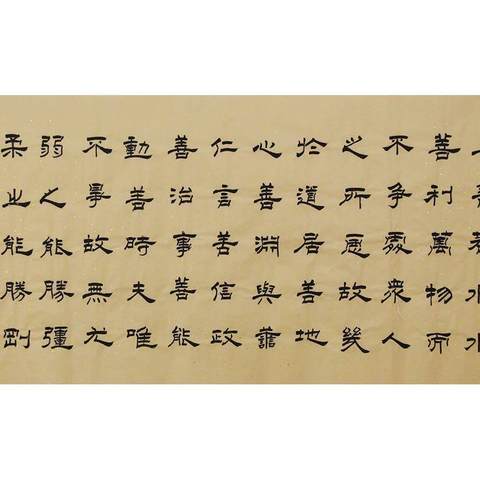 善利萬物而
不争處衆人
之所惡故幾
於道居善地
心善淵與譱
仁言善信政
善治事善能
動善時夫唯
不爭故無尤
弱之能勝彊
柔之能勝剛